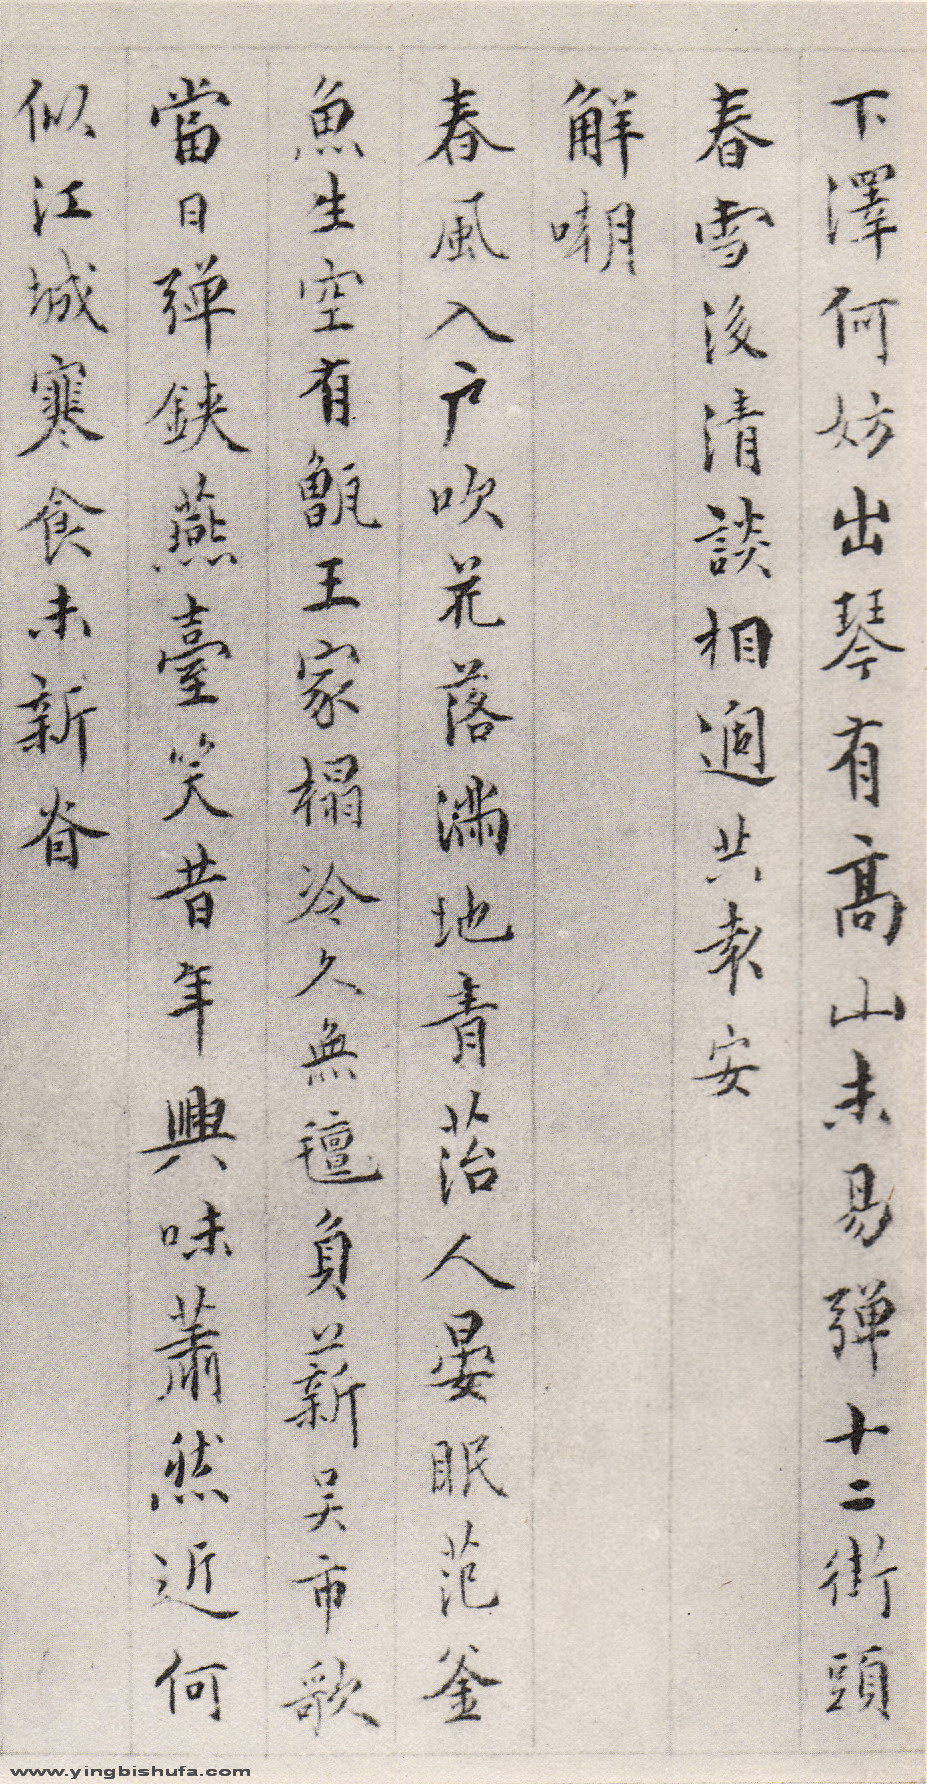 下澤何妨出琴有高山未易彈十二街頭
春雪後清談相過共袁安
解嘲
春風入戶吹花落滿地青苔人晏眠范釜
魚生空有甑王家榻冷久無氊負薪吳市歌
當日彈鋏燕臺笑昔年興味蕭然近何
似江城寒食未新
www.yingbishufa.com